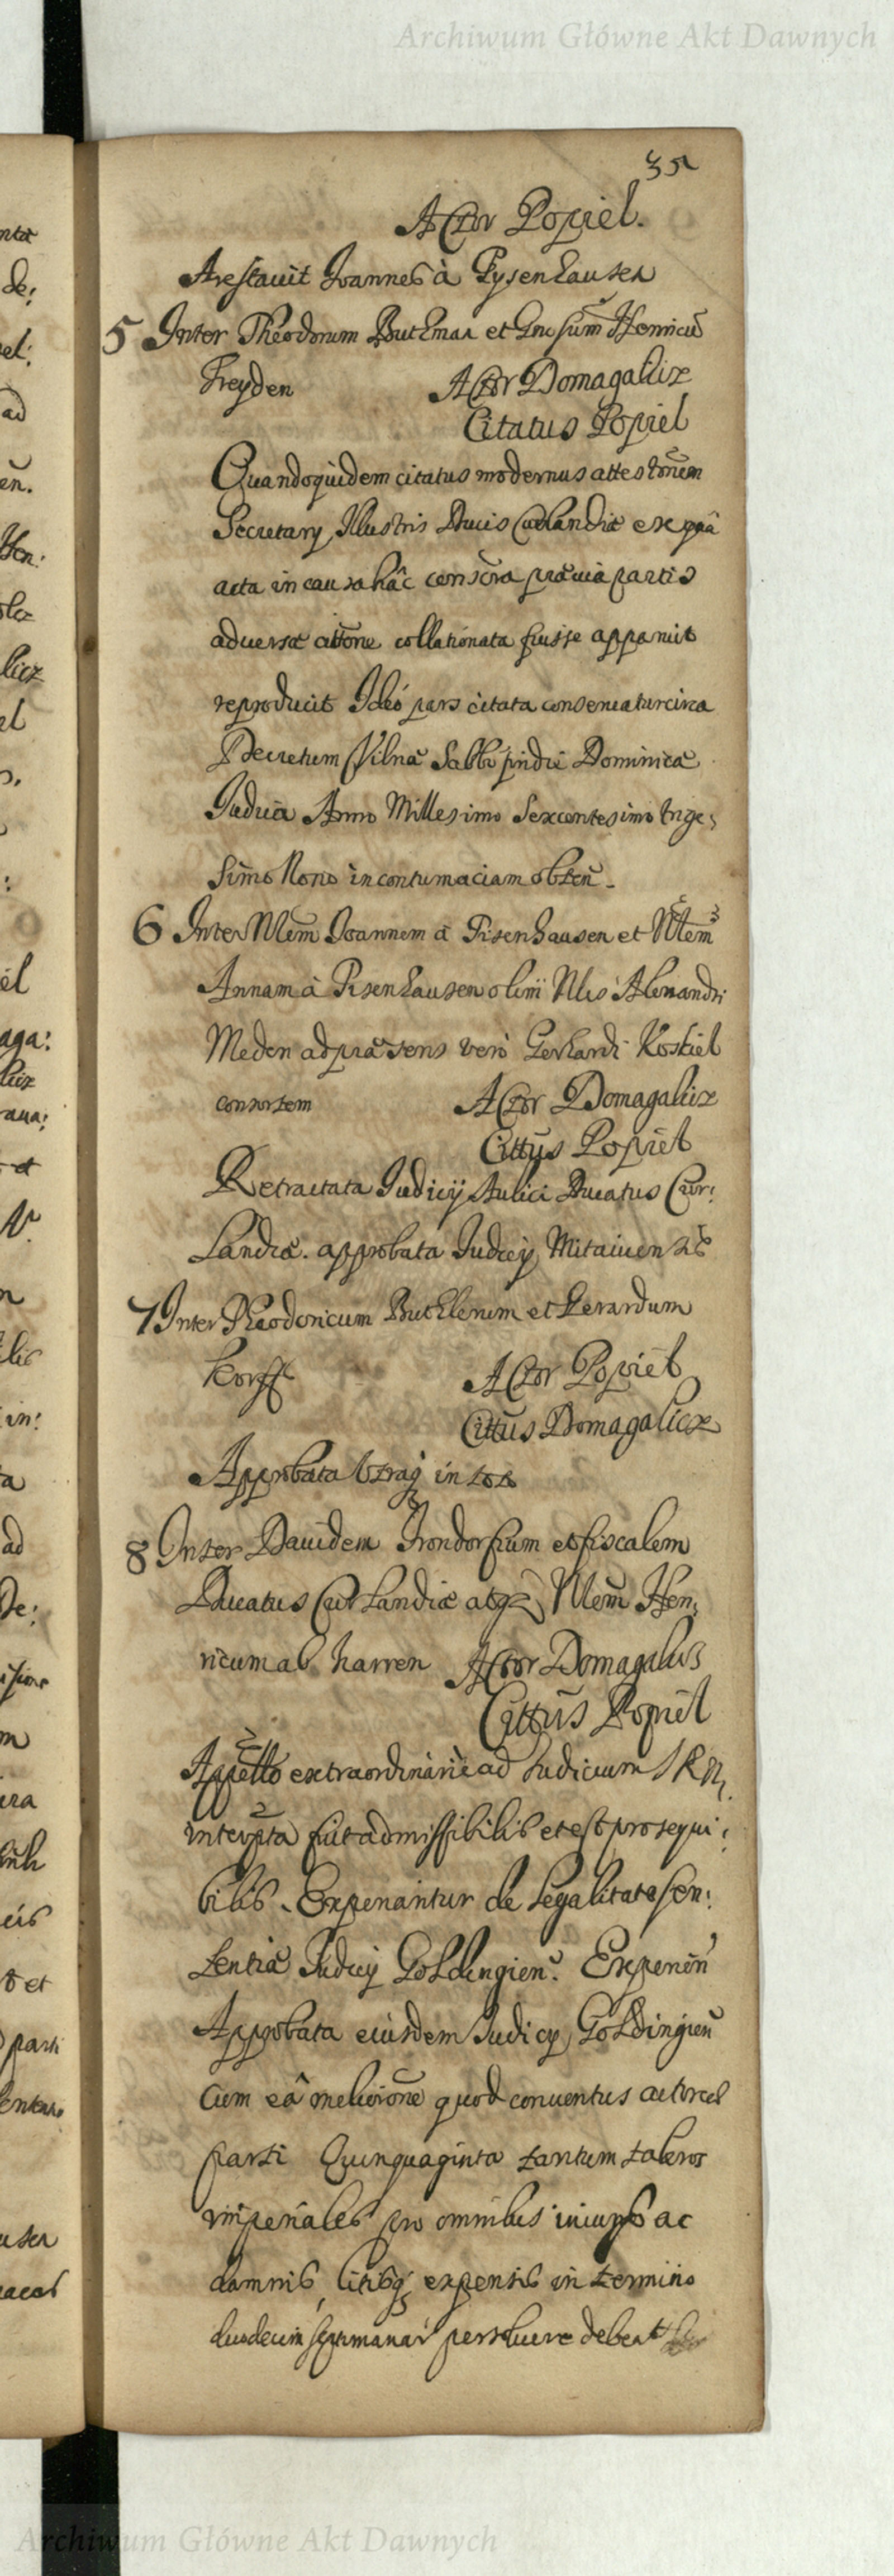 Archiwum Główne Akt Dawnych
35
Actor Popiel.
Arestauit Joannes à Pysenhausen
5 Inter Theodorum Buthmar et Gnosum Henricũ
Freyden Actor Domagalicz
Citatus Popiel
Quandoquidem citatus modernus attestõnem
Secretarij Illustris Ducis Curlandiæ ex quâ
acta in causa hâc conscñra præuia partis
aduersæ cittõne collationata fuisse apparuit
reproducit Ideó pars citata conseruatur circa
Decretum Vilnæ Sabbõ pridie Dominica
Iudica Anno Millesimo Sexcentesimo trige:
simo Nono in contumaciam obten̄.
6 Inter Nlem Joannem à Pisenhausen et Nlem
Annam à Pisenhausen olim Nlis Alexandri
Meden ad præsens verò Gerhardi Koskiel
consortem Actor Domagalicz
Cittũs Popiel
Retractata Iudicij Aulici Ducatus Cur:
landiæ. approbata Iudicij Mitauiensis
7 Inter Theodoricum Buthlerum et Gerardum
Korff Actor Popiel
Cittũs Domagalicz
Approbata Utraq in toto
8 Inter Dauidem Frondorfium et fiscalem
Ducatus Curlandiæ atq Nlem Hen:
ricum ab harren Actor Domagalicz
Cittũs Popiel
Appellõ extraordinariè ad Iudicium S R M
interpta fuit admissibilis et est prosequi:
bilis. Expenantur de legalitate sen:
tentiæ Iudicij Goldingien̄. Expenen̄
Approbata eiusdem Iudicij Goldingien̄
Cum eâ meliorõne quod conuentus actoreæ
parti Quinquaginta tantum taleros
imperiales pro omnibus iniurijs ac
damnis, litisq expensis in termino
duodecim septimanar̄ persoluere debeat
Archiwum Główne Akt Dawnych